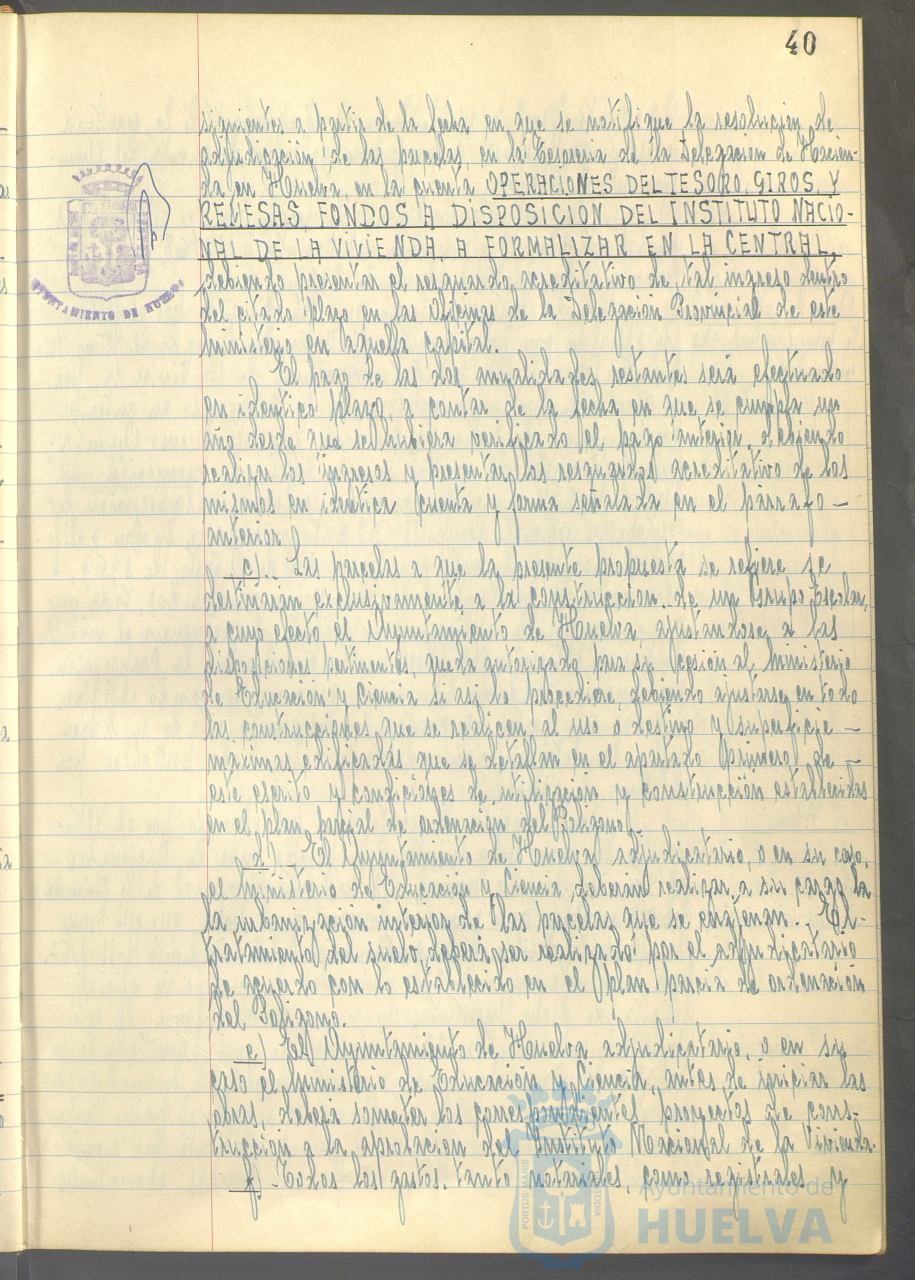 40
siguientes a partir de la fecha en que se notifique la resolución de
adjudicación de las parcelas, en la Tesoreria de la Delegación de Hacien-
da en Huelva, en la cuenta OPERACIONES DEL TESORO, GIROS, Y
REMESAS, FONDOS A DISPOSICION DEL INSTITUTO NACIO-
NAL DE LA VIVIENDA, A FORMALIZAR EN LA CENTRAL,
debiendo presentar el resguardo acreditativo de tal ingreso dentro
del citado plazo en las Oficinas de la Delegación Provincial de este
Ministerio en aquella capital.
El pago de las dos anualidades restantes será efectuado
en identico plazo, a contar de la fecha en que se cumpla un
año desde que se hubiera verificado el pago anterior, debiendo
realizar los ingresos y presentar los resguardos acreditativo de los
mismos en identica cuenta y forma señalada en el párrafo -
anterior.
c). Las parcelas a que la presente propuesta se refiere se
destinarán exclusivamente a la construccion de un Grupo Escolar,
a cuyo efecto el Ayuntamiento de Huelva ajustandose a las
disposiciones pertinentes, queda autorizado para su cesión al Ministerio
de Educación y Ciencia si asi lo procediere, debiendo ajustarse en todo
las construcciones que se realicen, al uso o destino y superficie -
maximas edificadas que se detallan en el apartado primero de
este escrito y condiciones de utilización y construcción establecidas
en el plan parcial de ordenación del Poligono.
d). El Ayuntamiento de Huelva adjudicatario, o en su caso,
el Ministerio de Educación y Ciencia, deberán realizar a su cargo la
la urbanización interior de las parcelas que se enajenan. El
tratamiento del suelo, deberá ser realizado por el adjudicatario
de acuerdo con lo establecido en el plan parcia de ordenación
del Poligono.
e) El Ayuntamiento de Huelva adjudicatario, o en su
caso el Ministerio de Educación y Ciencia, antes de iniciar las
obras, deberá someter los correspondientes proyectos de cons-
trucción a la aprobacion del Instituto Nacional de la Vivienda.
f) - Todos los gastos, tanto notariales, como registrales y
AYUNTAMIENTO DE HUELVA
PORTUS MARIS
CUSTODIA
Ayuntamiento de
HUELVA